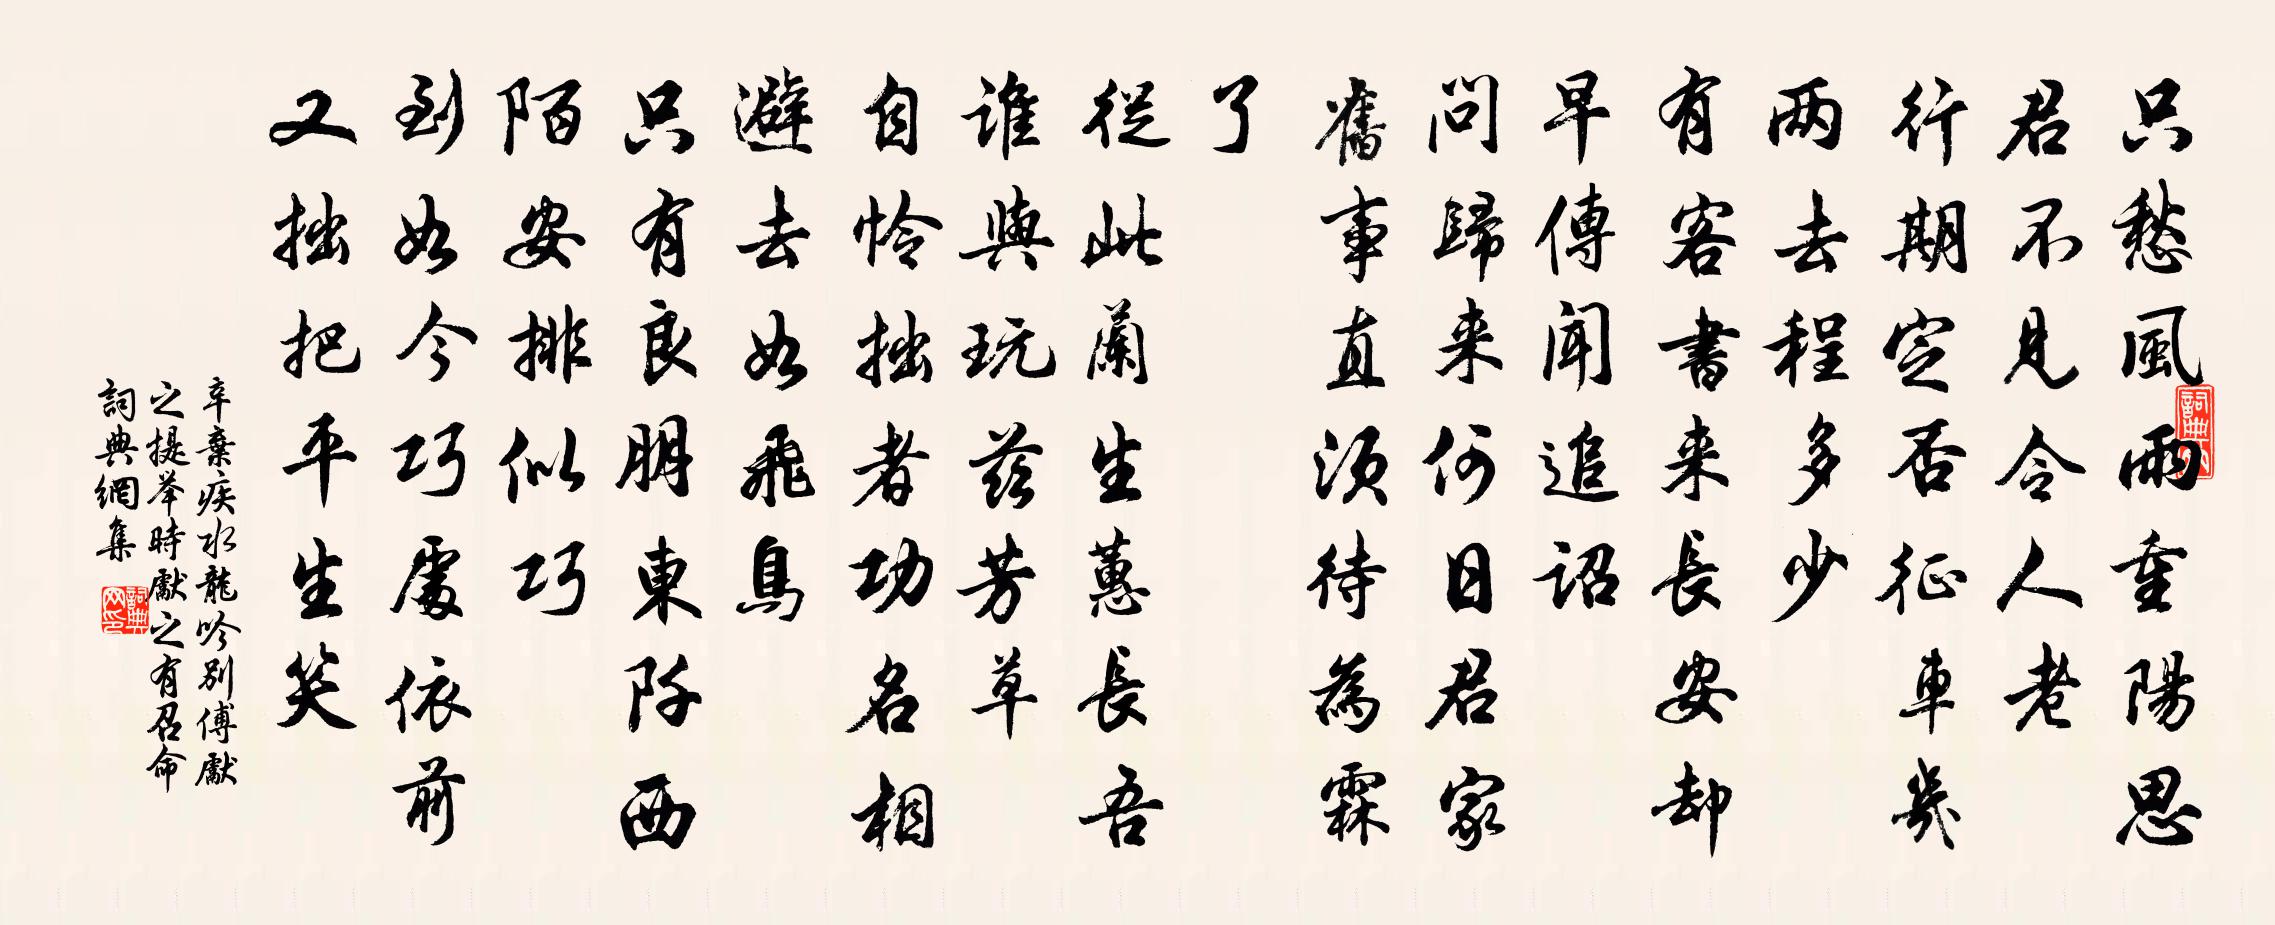 只愁風雨重陽思
君不見令人老
行期定否征車幾
兩去程多少
有客書来長安却
早傳聞追詔
問歸来何日君家
舊事直須待為霖
了
從此蘭生蕙長吾
誰與玩茲芳草
自怜拙者功名相
避去如飛鳥
只有良朋東阡西
陌安排似巧
到如今巧處依前
又拙把平生笑
辛棄疾水龍吟别傅獻
之提举時獻之有召命
詞典網集